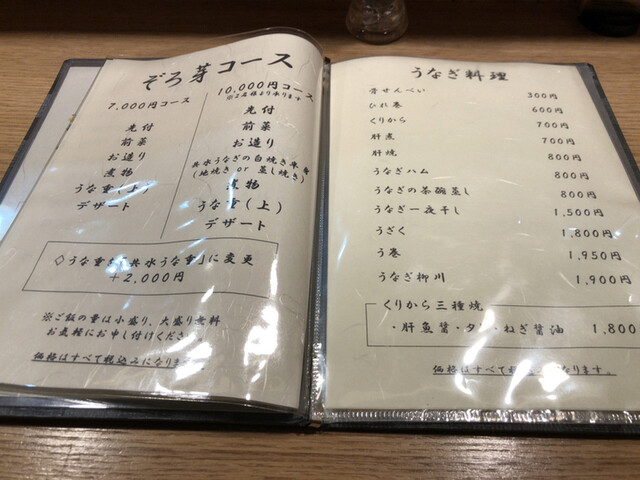 ぞろ芽コース
7,000円コース
先付
前菜
お造り
煮物
うな重(上)
デザート
10,000円コース
※2名様より承ります
先付
前菜
お造り
共水うなぎの白焼き半身
(地焼き or 蒸し焼き)
煮物
うな重(上)
デザート
◇うな重を「共水うな重」に変更
+2,000円
※ご飯の量は小盛り、大盛り無料
お気軽にお申し付けください。
価格はすべて税込みになります。
うなぎ料理
骨せんべい 300円
ひれ巻 600円
くりから 700円
肝煮 700円
肝焼 800円
うなぎハム 800円
うなぎの茶碗蒸し 800円
うなぎ一夜干し 1,500円
うざく 1,800円
う巻 1,950円
うなぎ柳川 1,900円
くりから三種焼
・肝魚醤・タレ・ねぎ醤油 1,800
価格はすべて税込みになります。